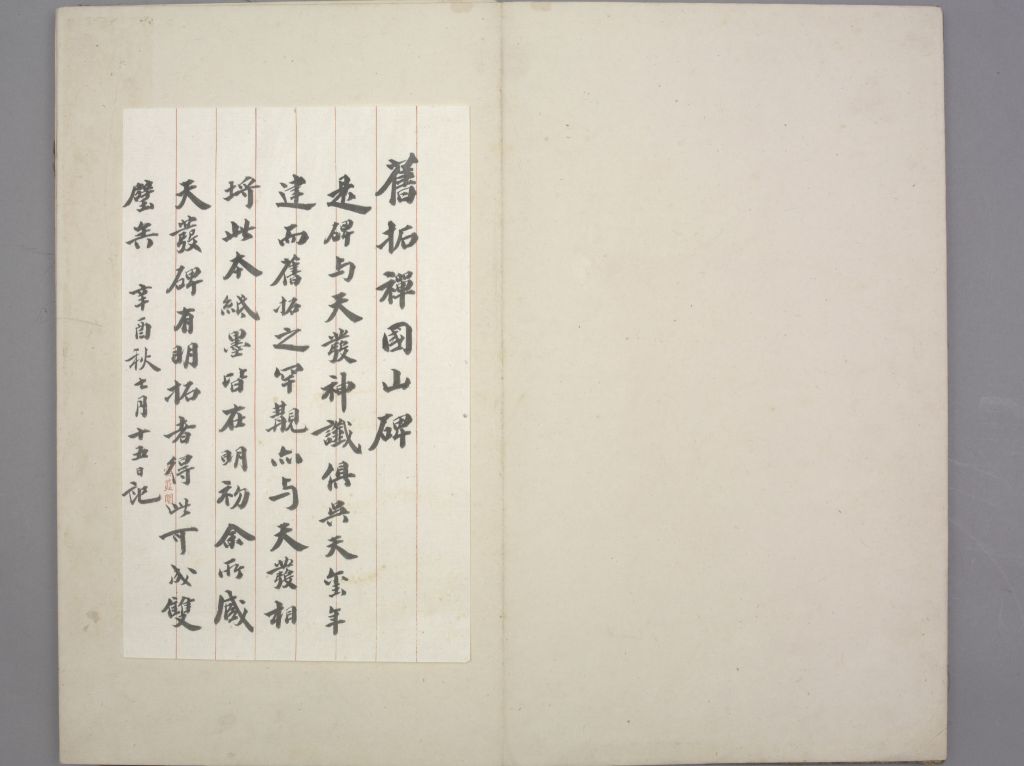 舊拓禪國山碑
是碑与天發神讖俱吳天璽年
建而舊拓之罕覯亦与天發相
埒此本紙墨皆在明初余所藏
天發碑有明拓者得此可成雙
璧矣 辛酉秋七月十五日記